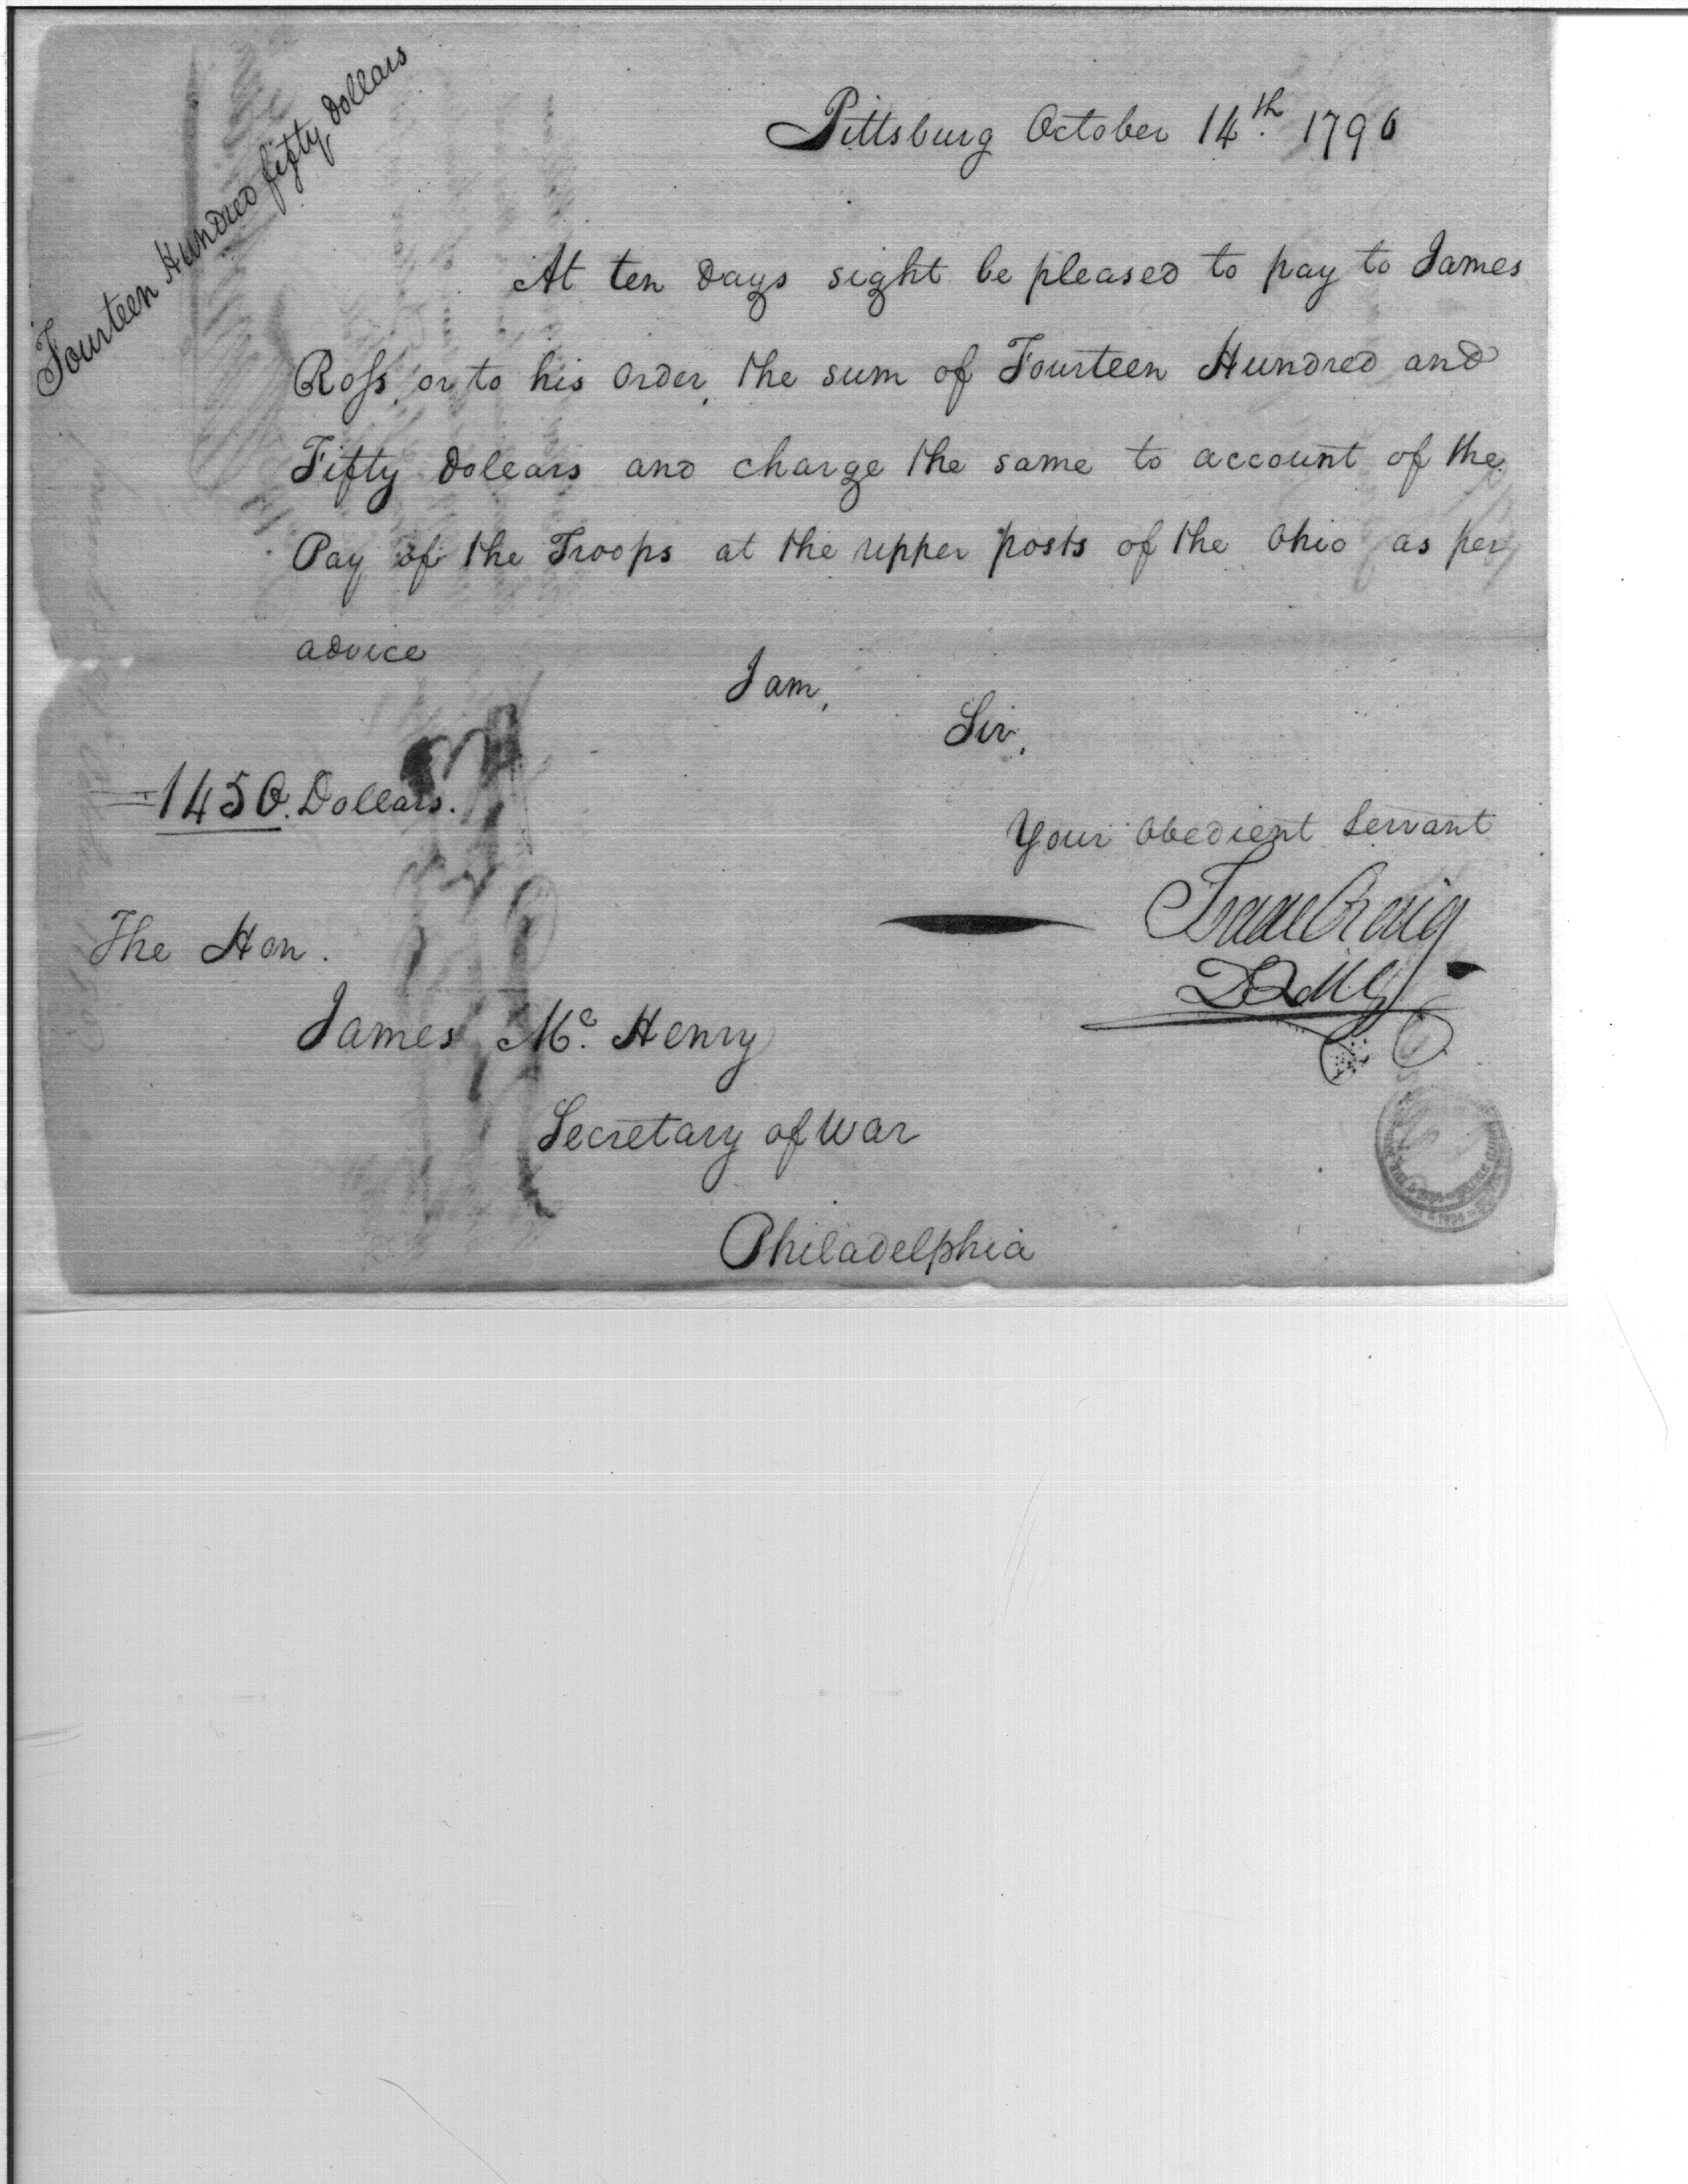 Fourteen Hundred fifty Dollars
Pittsburg October 14th. 1796
At ten days sight be pleased to pay to James
Ross, or to his order, the sum of Fourteen Hundred and
Fifty Dollars and charge the same to account of the
Pay of the Troops at the upper posts of the Ohio as per
advice
I am,
Sir,
1450. Dollars.
Your Obedient Servant
Isaac Craig
DQMG
The Hon.
James Mc. Henry
Secretary of War
Philadelphia